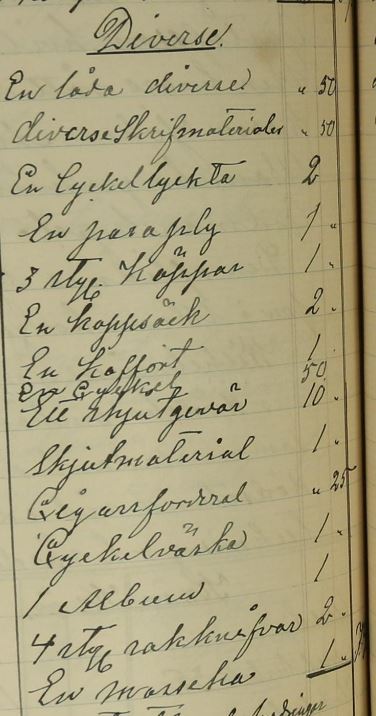 Diverse.
En låda diverse " 50
diverse Skrifmaterialer " 50
En Cyckellyckta 2
En paraply 1 "
3 styg. Käppar 1 "
En kappsäck 2 "
En Koffort 1
En Cyckel 50
Ett skjutgevär 10 "
Skjutmaterial 1 "
Cigarrfordral " 25
Cyckelväska 1 "
1 Album 1
4 styg rakknifvar 2 "
En 1 "